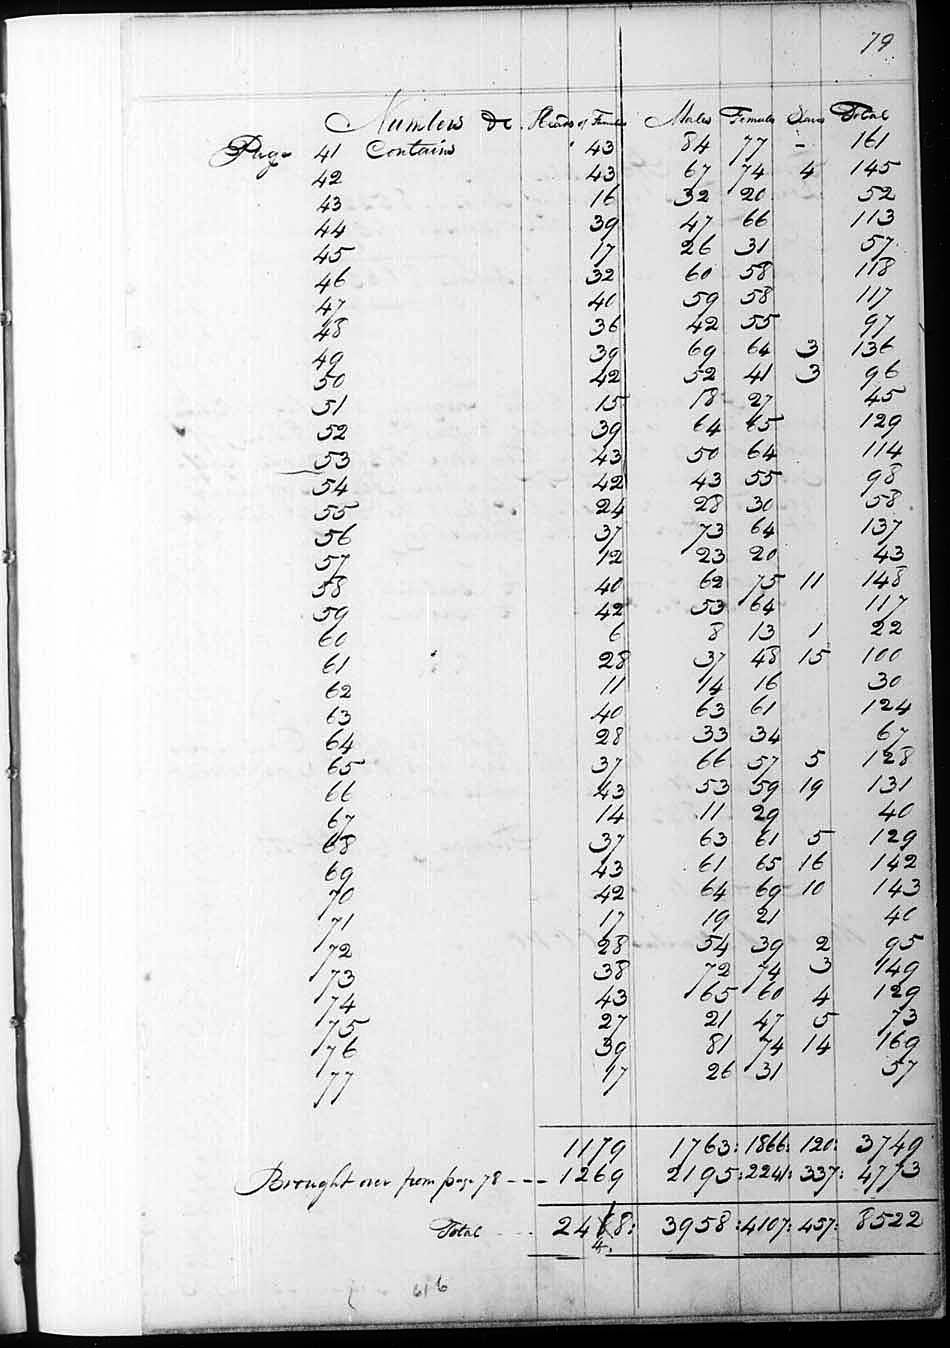 79
Numbers &c. Heads of Families Males Females Slaves Total
Page 41 Contains 43 84 77 - 161
42 43 67 74 4 145
43 16 32 20 52
44 39 47 66 113
45 17 26 31 57
46 32 60 58 118
47 40 59 58 117
48 36 42 55 97
49 39 69 64 3 136
50 42 52 41 3 96
51 15 18 27 45
52 39 64 65 129
53 43 50 64 114
54 42 43 55 98
55 24 28 30 58
56 37 73 64 137
57 12 23 20 43
58 40 62 75 11 148
59 42 53 64 117
60 6 8 13 1 22
61 28 37 48 15 100
62 11 14 16 30
63 40 63 61 124
64 28 33 34 67
65 37 66 57 5 128
66 43 53 59 19 131
67 14 11 29 40
68 37 63 61 5 129
69 43 61 65 16 142
70 42 64 69 10 143
71 17 19 21 40
72 28 54 39 2 95
73 38 72 74 3 149
74 43 65 60 4 129
75 27 21 47 5 73
76 39 81 74 14 169
77 17 26 31 57
1179 1763: 1866: 120: 3749
Brought over from page 78 --- 1269 2195: 2241: 337: 4773
Total --- 2448: 3958: 4107: 457: 8522
616